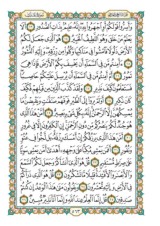 وَأَسِرُّوا قَوْلَكُمْ أَوِ اجْهَرُوا بِهِ إِنَّهُ عَلِيمٌ بِذَاتِ الصُّدُورِ
أَلَا يَعْلَمُ مَنْ خَلَقَ وَهُوَ اللَّطِيفُ الْخَبِيرُ هُوَ الَّذِي جَعَلَ لَكُمُ
الْأَرْضَ ذَلُولًا فَامْشُوا فِي مَنَاكِبِهَا وَكُلُوا مِنْ رِزْقِهِ وَإِلَيْهِ النُّشُورُ
أَأَمِنْتُمْ مَنْ فِي السَّمَاءِ أَنْ يَخْسِفَ بِكُمُ الْأَرْضَ فَإِذَا هِيَ
تَمُورُ أَمْ أَمِنْتُمْ مَنْ فِي السَّمَاءِ أَنْ يُرْسِلَ عَلَيْكُمْ حَاصِبًا
فَسَتَعْلَمُونَ كَيْفَ نَذِيرِ وَلَقَدْ كَذَّبَ الَّذِينَ مِنْ قَبْلِهِمْ فَكَيْفَ
كَانَ نَكِيرِ أَوَلَمْ يَرَوْا إِلَى الطَّيْرِ فَوْقَهُمْ صَافَّاتٍ وَيَقْبِضْنَ
مَا يُمْسِكُهُنَّ إِلَّا الرَّحْمَنُ إِنَّهُ بِكُلِّ شَيْءٍ بَصِيرٌ أَمَّنْ هَذَا الَّذِي
هُوَ جُنْدٌ لَكُمْ يَنْصُرُكُمْ مِنْ دُونِ الرَّحْمَنِ إِنِ الْكَافِرُونَ إِلَّا فِي
غُرُورٍ أَمَّنْ هَذَا الَّذِي يَرْزُقُكُمْ إِنْ أَمْسَكَ رِزْقَهُ بَلْ لَجُّوا
فِي عُتُوٍّ وَنُفُورٍ أَفَمَنْ يَمْشِي مُكِبًّا عَلَى وَجْهِهِ أَهْدَى أَمَّنْ يَمْشِي
سَوِيًّا عَلَى صِرَاطٍ مُسْتَقِيمٍ قُلْ هُوَ الَّذِي أَنْشَأَكُمْ وَجَعَلَ لَكُمُ السَّمْعَ
وَالْأَبْصَارَ وَالْأَفْئِدَةَ قَلِيلًا مَا تَشْكُرُونَ قُلْ هُوَ الَّذِي ذَرَأَكُمْ
فِي الْأَرْضِ وَإِلَيْهِ تُحْشَرُونَ وَيَقُولُونَ مَتَى هَذَا الْوَعْدُ إِنْ كُنْتُمْ
صَادِقِينَ قُلْ إِنَّمَا الْعِلْمُ عِنْدَ اللَّهِ وَإِنَّمَا أَنَا نَذِيرٌ مُبِينٌ
٥٦٣